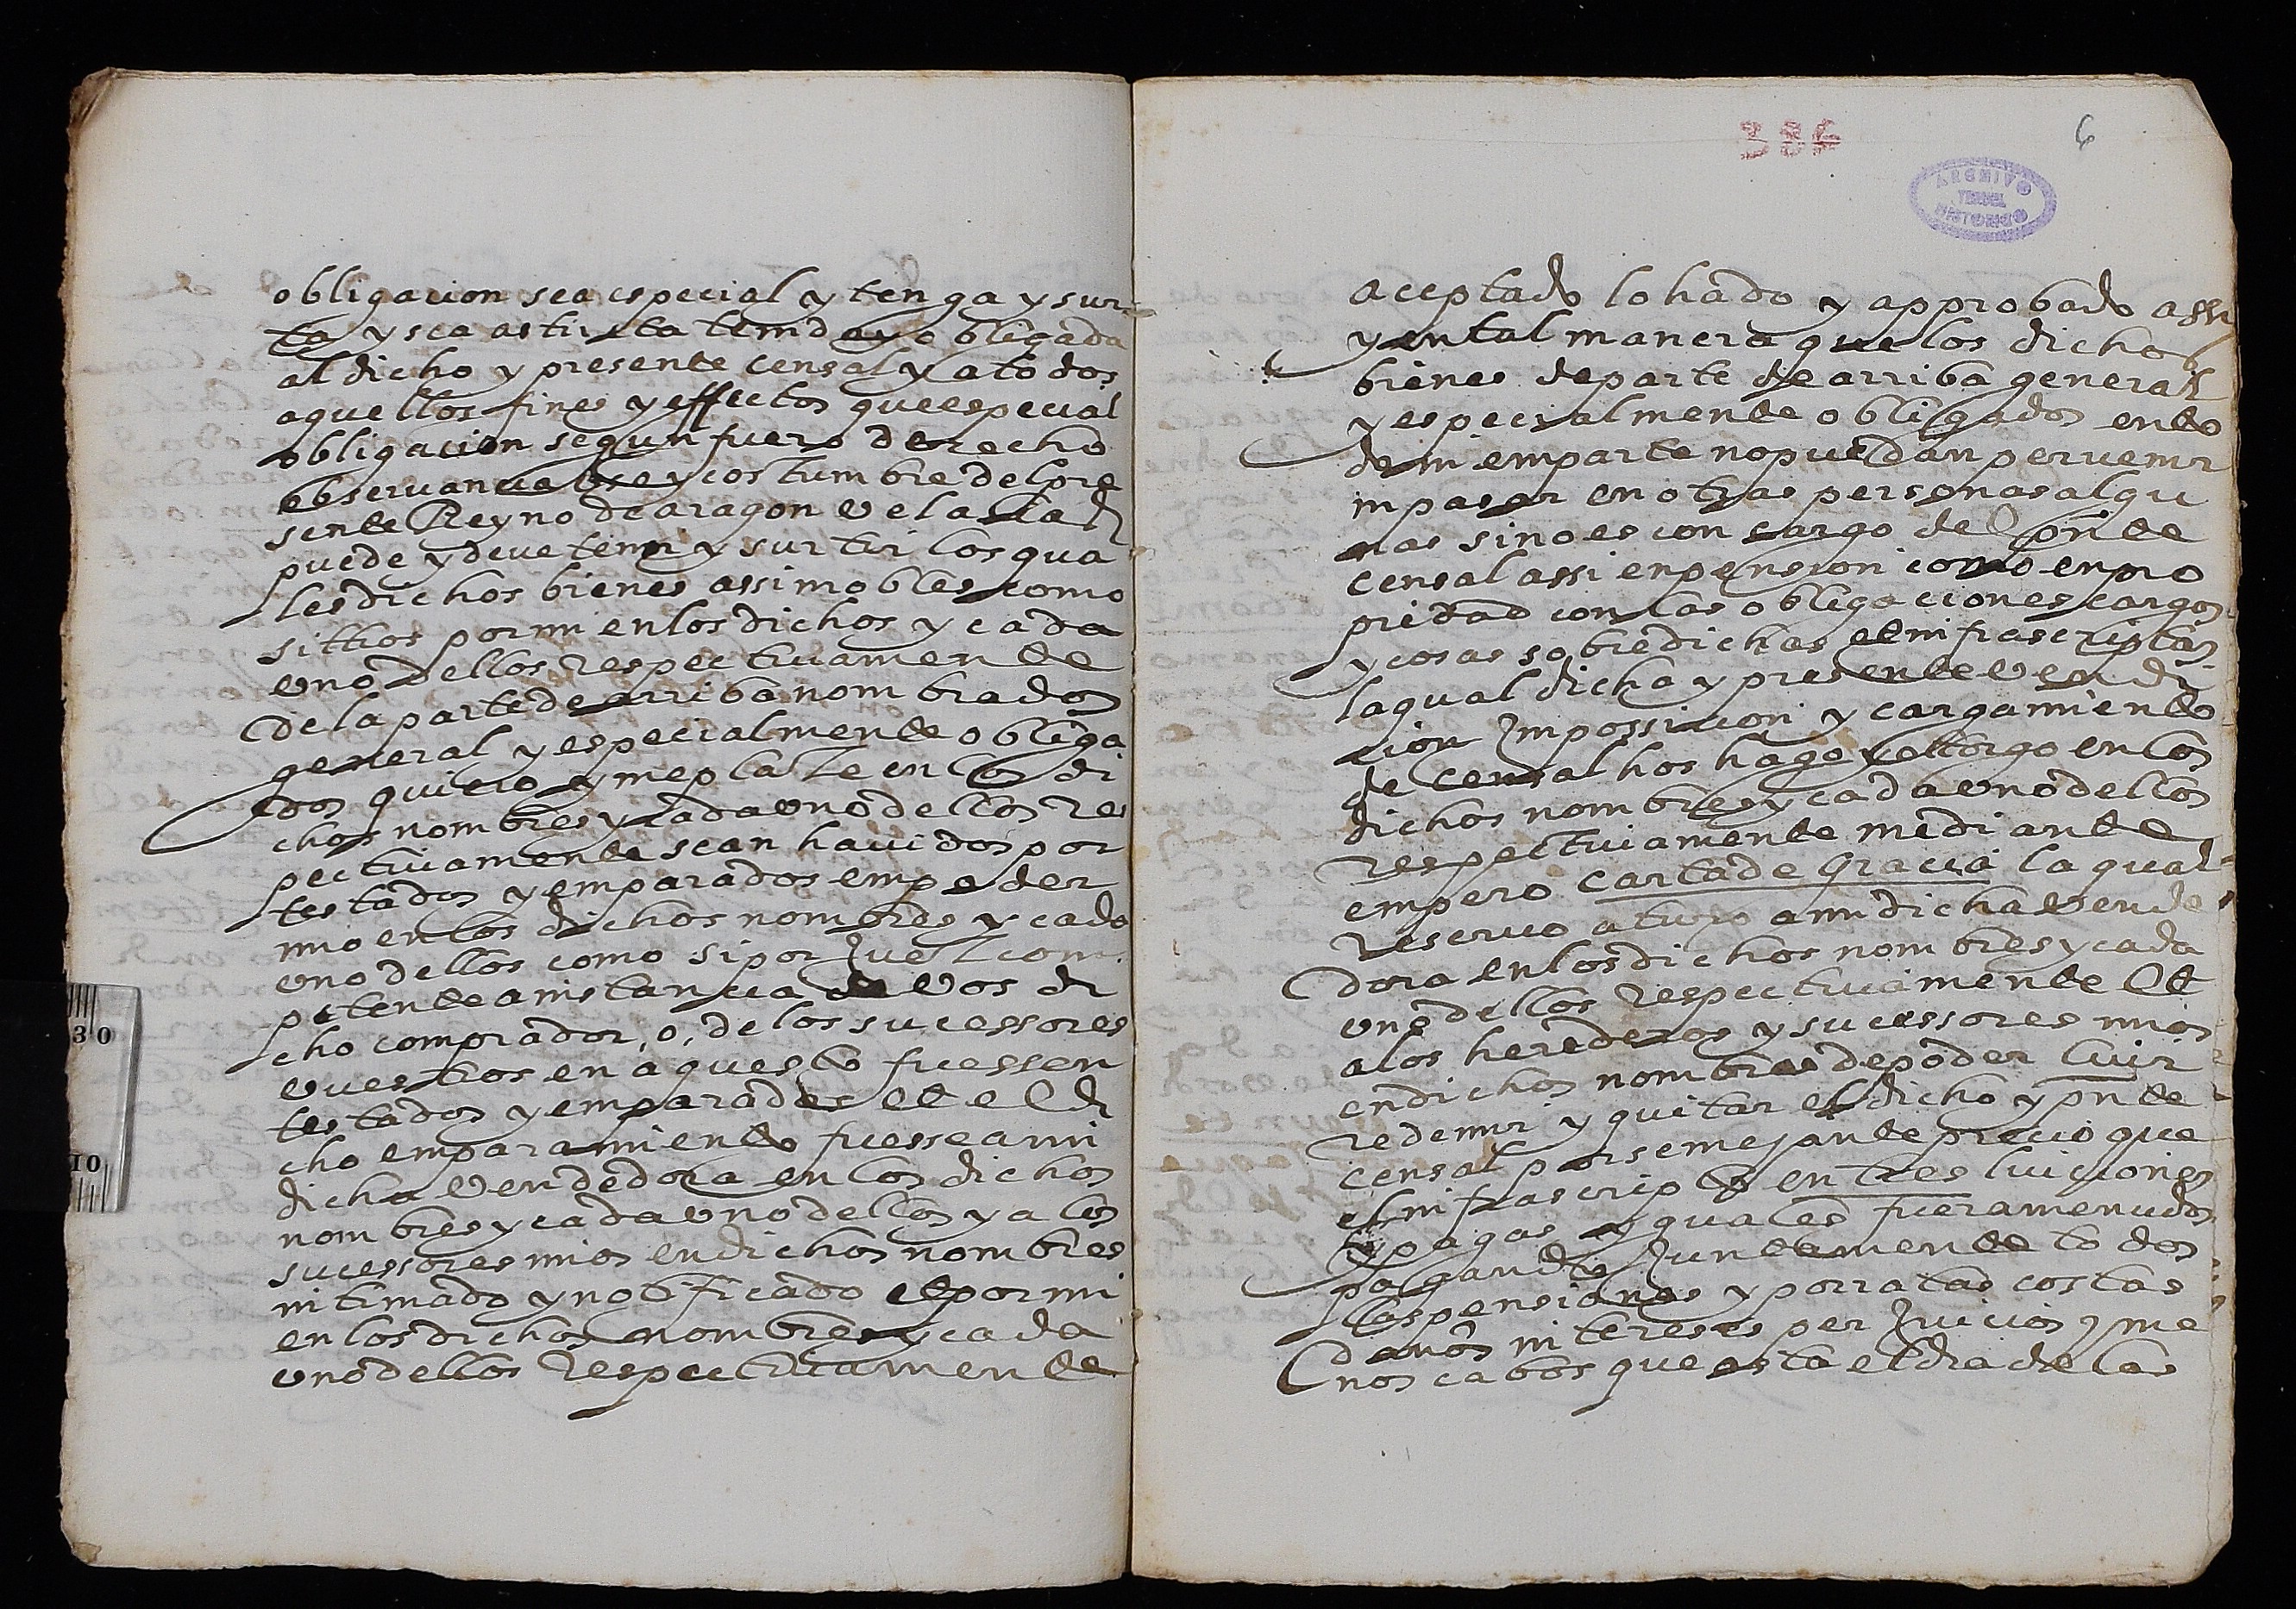 obligacion sea especial y tenga y sur-
ta y sea astricta temda y obligada
al dicho y presente censal y a todos
aquellos fines y effectos que especial
obligacion segun fuero derecho
observancia uso y costumbre del pre
sente Reyno de aragon vel alias
puede y deve tener y surtir los qua
les dichos bienes assi mobles como
sittios por mi en los dichos y cada
uno dellos respectivamente
de la parte de arriba nombrados
general y especialmente obliga
dos quiero y me plaze en los di
chos nombres y cada uno dellos res
pectivamente sean havidos por
testados y emparados em poder
mio en los dichos nombres y cada
uno dellos como si por Juez com
petente a instancia de vos di
cho comprador, o, de los sucessores
vuestros en aquesto fuessen
testados y emparados et el di
cho emparamiento fuesse a mi
dicha vendedora en los dichos
nombres y cada uno dellos y a los
sucessores mios en dichos nombres
intimado y notificado et por mi
en los dichos nombres y cada
uno dellos respectivamente
384
6
ARCHIVO
TERUEL
HISTORICO
aceptado lohado y approbado assi
y en tal manera que los dichos
bienes de parte de arriba general
y especialmente obligados en to
do ni em parte no puedan pervenir
ni pasar en otras personas algu
nas sino es con cargo del pnte
censal assi en pension como en pro
piedad con las obligaciones cargos
y cosas sobredichas et infrascriptas
la qual dicha y presente vendi
cion Impossicion y cargamiento
de censal hos hago y ottorgo en los
dichos nombres y cada uno dellos
respectivamente mediante
empero carta de gracia la qual
reservo a mi dicha vende
dora en los dichos nombres y cada
uno dellos respectivamente et
a los herederos y sucessores mios
en dichos nombres de poder luir
redemir y quitar el dicho y pnte
censal por semejante precio que
el infrascripto en tres luiciones
y pagas yguales fueramenudos
pagando Juntamente todas
las pensiones y porratas costas
danos intereses perJuicios y me
nos cabos que asta el dia de las